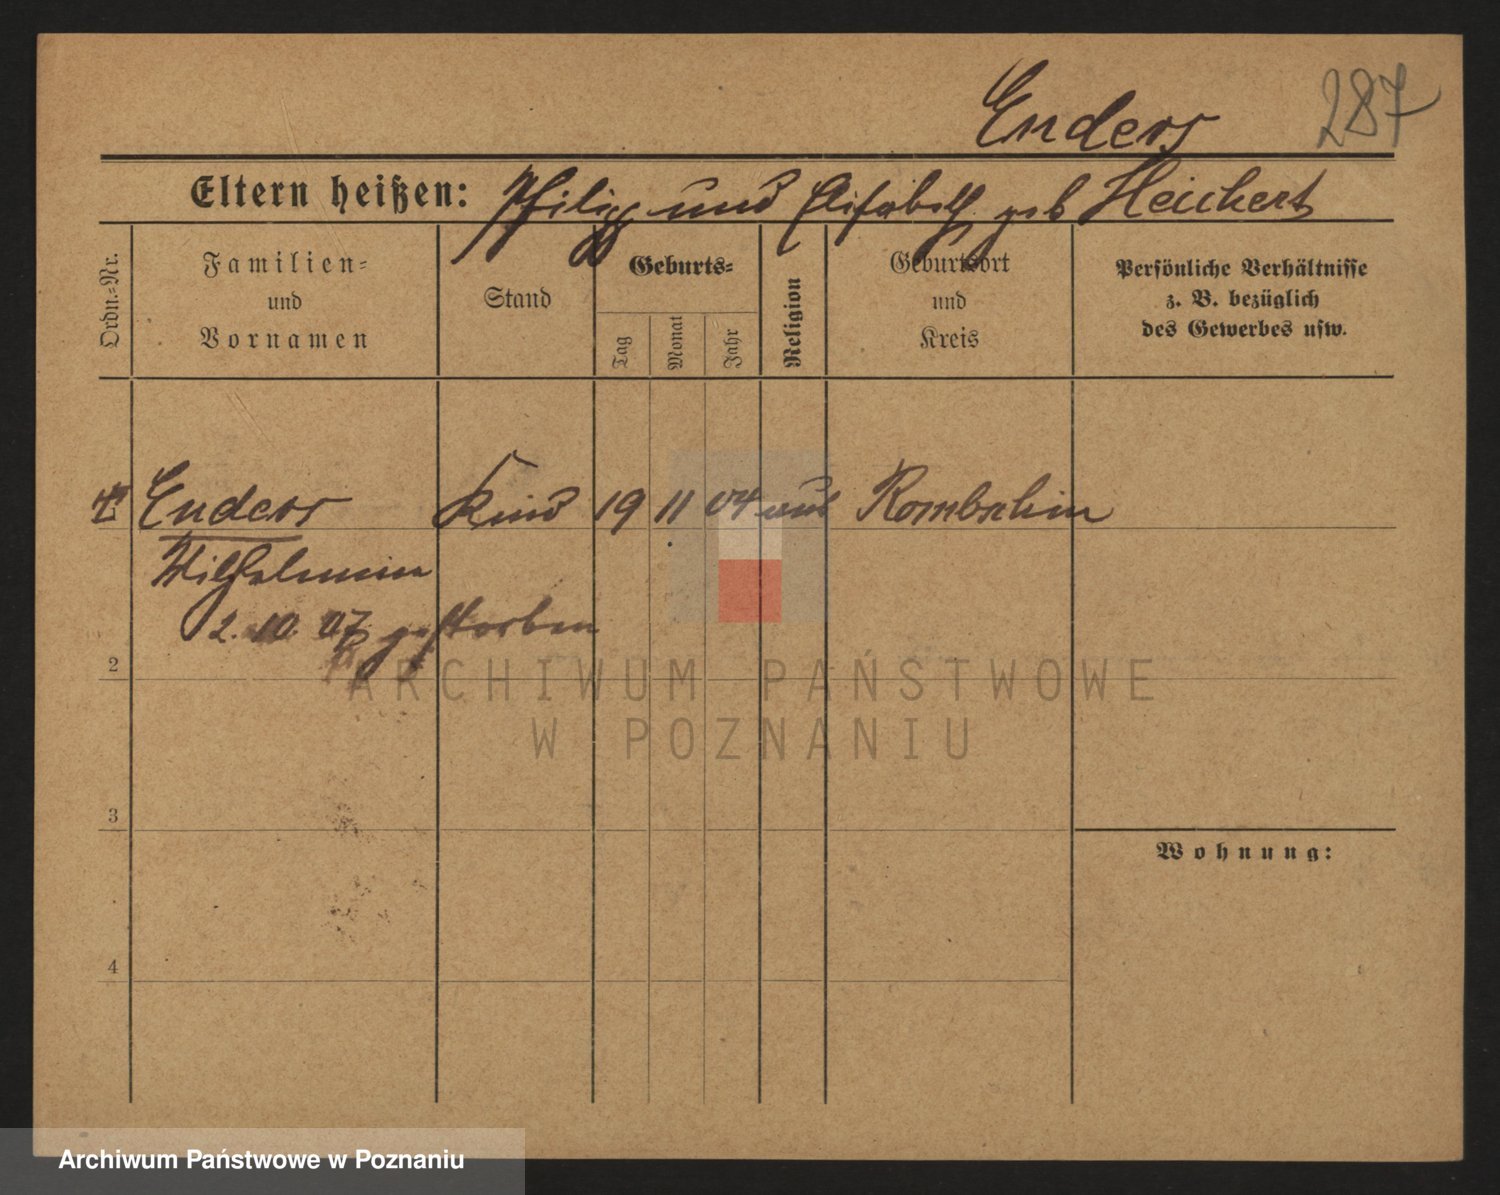 Enders
287
Eltern heißen: Philipp und Elisabeth geb Heichert
Ordn.-Nr.
Familien-
und
Vornamen
Stand
Geburts-
Tag
Monat
Jahr
Religion
Geburtsort
und
Kreis
Persönliche Verhältnisse
z. B. bezüglich
des Gewerbes usw.
Enders Kind 19 11 04
Wilhelmine
2. 10. 07 gestorben
2
3
4
Wohnung:
ARCHIWUM PAŃSTWOWE
W POZNANIU
Archiwum Państwowe w Poznaniu